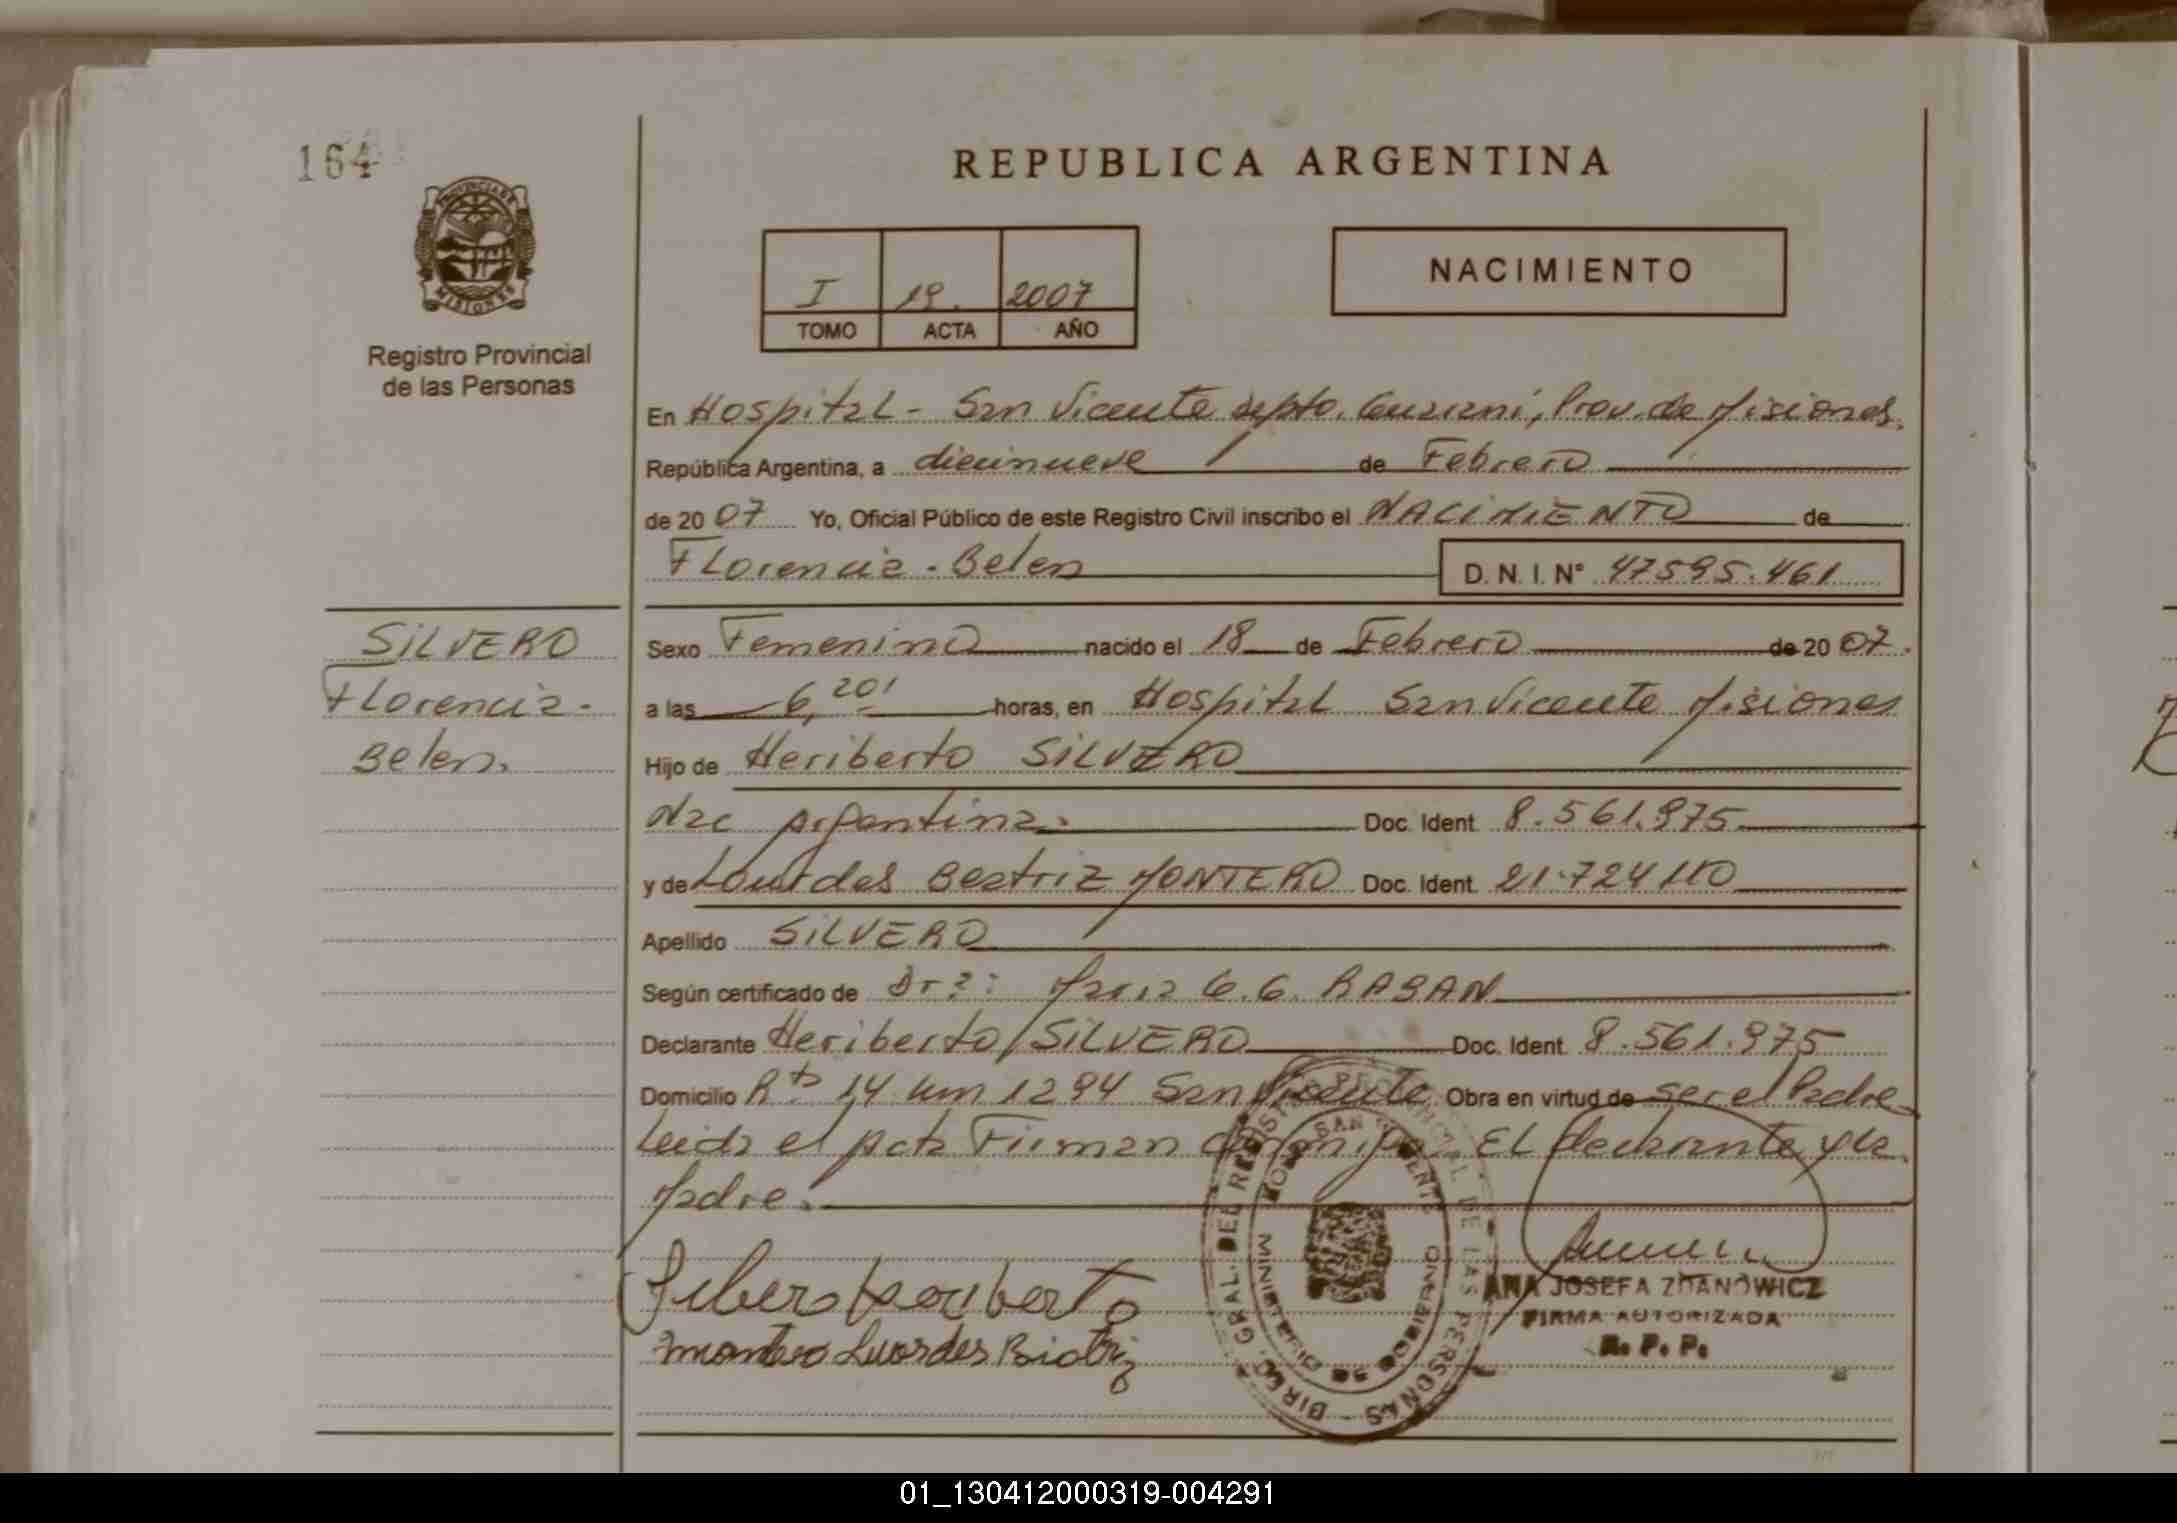 164
REPUBLICA ARGENTINA
PROVINCIA DE
MISIONES
Registro Provincial
de las Personas
I 19. 2007
TOMO ACTA AÑO
NACIMIENTO
En Hospital - San Vicente depto. Guarani, Prov. de Misiones.
República Argentina, a diecinueve de Febrero
de 2007 Yo, Oficial Público de este Registro Civil inscribo el NACIMIENTO de
Florencia - Belen D. N. I. N° 47595.461
SILVERO
Florencia -
Belen.
Sexo Femenino nacido el 18 de Febrero de 2007.
a las 6,20' horas, en Hospital San Vicente Misiones
Hijo de Heriberto SILVERO
Nac Argentina. Doc. Ident. 8.561.975
y de Lourdes Beatriz MONTERO Doc. Ident. 21.724.110
Apellido SILVERO
Según certificado de Dra: Maria G.G. BABAN
Declarante Heriberto SILVERO Doc. Ident. 8.561.975
Domicilio Rta 14 km 1294 San Vicente Obra en virtud de ser el Padre
Leida el Acta Firman conmigo. El declarante y la
Madre.
Silvero Heriberto
Montero Luordes Biatriz
DIREC. GRAL. DEL REGISTRO PROVINCIAL DE LAS PERSONAS
SAN VICENTE
MINISTERIO DE GOBIERNO
ANA JOSEFA ZDANOWICZ
FIRMA AUTORIZADA
R. P. P.
01_130412000319-004291